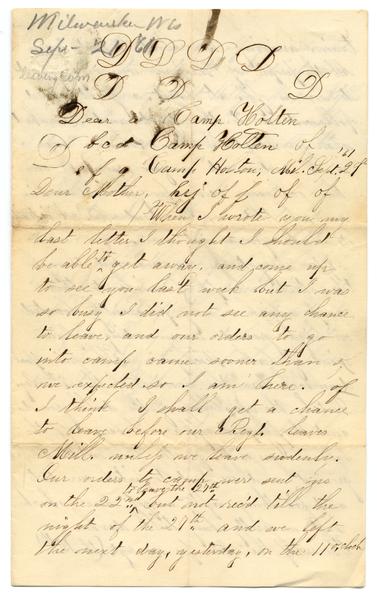 Milwaukee Wis
Sept - 29 / 61
D D D D D
D D D
Dear a Camp Holten
b c d Camp Holten of
f g Camp Holton, Sept. 29 '61
Dear Mother, h i j of f of of
When I wrote you my
last letter I thought I should
be able to get away, and come up
to see you last week but I was
so busy I did not see any chance
to leave, and our orders to go
into camp came sooner than
we expected so I am here. of
I think I shall get a chance
to leave before our Regt. leaves
Mill. unless we leave sudenly.
Our orders to camp were sent
to leave the 27th
on the 22nd but not rec'd till the
night of the 27th and we left
the next day, yesterday, on the 11 o,clock